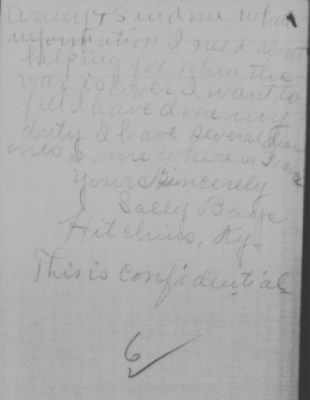 Army & Send me what
information I need about
helping for when the
war is over I want to
feel I have done my
duty I have several dear
ones somewhere in France
Yours Sincerely
Sally
Hitchins, Ky.
This is confidential
6